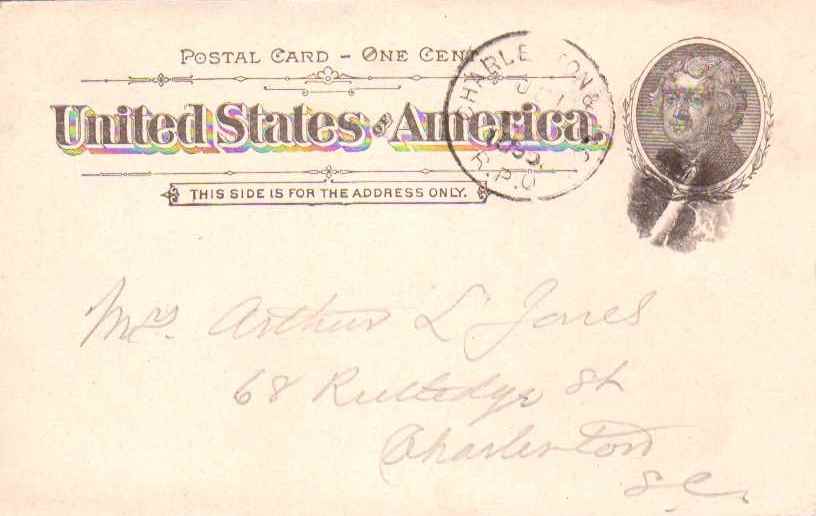 POSTAL CARD – ONE CENT
United States of America.
THIS SIDE IS FOR THE ADDRESS ONLY.
CHARLESTON &
R.P.O.
Mrs. Arthur L Jones
68 Rutledge St
Charleston
S.C.